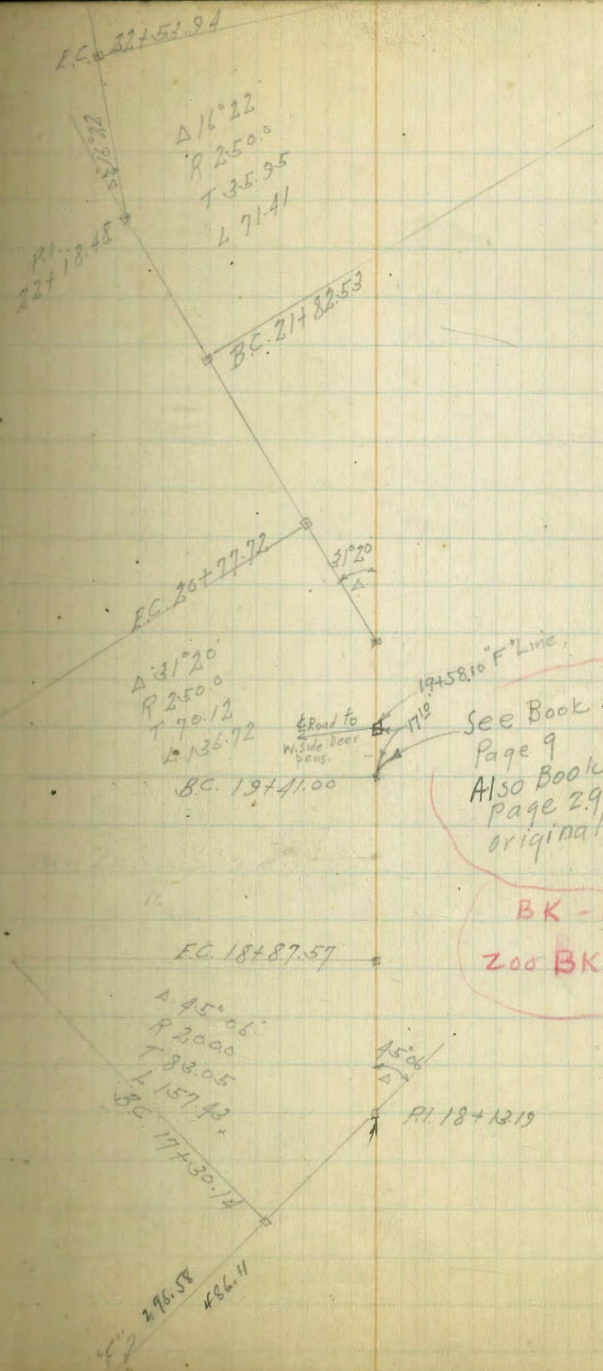 E.C. 22+53.94
Δ 16°22'
R 250.0
T 35.95
L 71.41
Δ 16°22
P.I.
22+18.48
B.C. 21+82.53
E.C. 20+77.72
31°20
Δ
Δ 31°20'
R 250.0
T 70.12
L 136.72
19+58.10 "F" Line
17.10
℄ Road to
W. Side Deer
pens.
See Book
Page 9
Also Book
Page 29
original
B.C. 19+41.00
BK -
ZOO BK
E.C. 18+87.57
Δ 45°06'
R 200.0
T 83.05
L 157.43
B.C. 17+30.14
45°06
Δ
P.I. 18+13.19
296.58
486.11
"F"